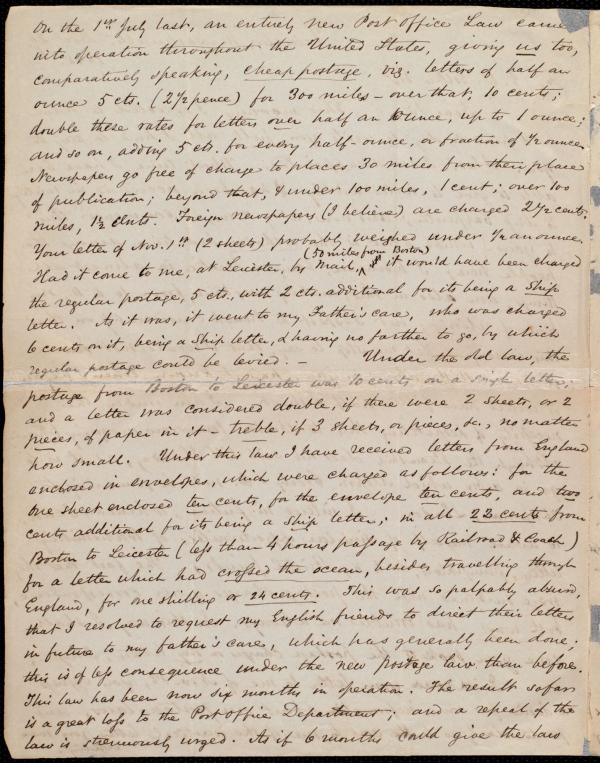 On the 1st July last, an entirely new Post Office Law came
into operation throughout the United States, giving us too,
comparatively speaking, cheap postage, viz. letters of half an
ounce 5 cts. (2 1/2 pence) for 300 miles – over that, 10 cents;
double these rates for letters over half an ounce, up to 1 ounce;
and so on, adding 5 cts. for every half-ounce, or fraction of 1/2 ounce.
Newspapers go free of charge to places 30 miles from their place
of publication; beyond that, & under 100 miles, 1 cent; over 100
miles, 1 1/2 cents. Foreign newspapers (I believe) are charged 2 1/2 cents.
Your letter of Nov. 1st (2 sheets) probably weighed under 1/2 an ounce.
(50 miles from Boston)
Had it come to me, at Leicester, by Mail, it would have been charged
the regular postage, 5 cts., with 2 cts. additional for its being a Ship
letter. As it was, it went to my Father's care, who was charged
6 cents on it, being a Ship letter, & having no farther to go, by which
regular postage could be levied. – Under the old law, the
postage from Boston to Leicester was 10 cents on a single letter;
and a letter was considered double, if there were 2 sheets, or 2
pieces, of paper in it – treble, if 3 sheets, or pieces, &c., no matter
how small. Under this law I have received letters from England
enclosed in envelopes, which were charged as follows: for the
one sheet enclosed ten cents, for the envelope ten cents, and two
cents additional for its being a Ship letter; in all 22 cents from
Boston to Leicester (less than 4 hours passage by Railroad & Coach)
for a letter which had crossed the ocean, besides travelling through
England, for one shilling or 24 cents. This was so palpably absurd,
that I resolved to request my English friends to direct their letters
in future to my father's care, which has generally been done;
this is of less consequence under the new postage law than before.
This law has been now six months in operation. The result so far
is a great loss to the Post Office Department; and a repeal of the
law is strenuously urged. As if 6 months could give the law